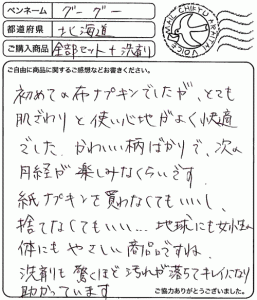 ペンネーム グーグー
都道府県 北海道
ご購入商品 全部セット+洗剤
ご自由に商品に関するご感想などお書きください。
初めての布ナプキンでしたが、とても
肌ざわりと使い心地がよく快適
でした。かわいい柄ばかりで、次の
月経が楽しみなくらいです。
紙ナプキンを買わなくてもいいし、
捨てなくてもいい…地球にも女性の
体にもやさしい商品ですね。
洗剤も驚くほど汚れが落ちてキレイになり
助かっています
ご協力ありがとうございました。